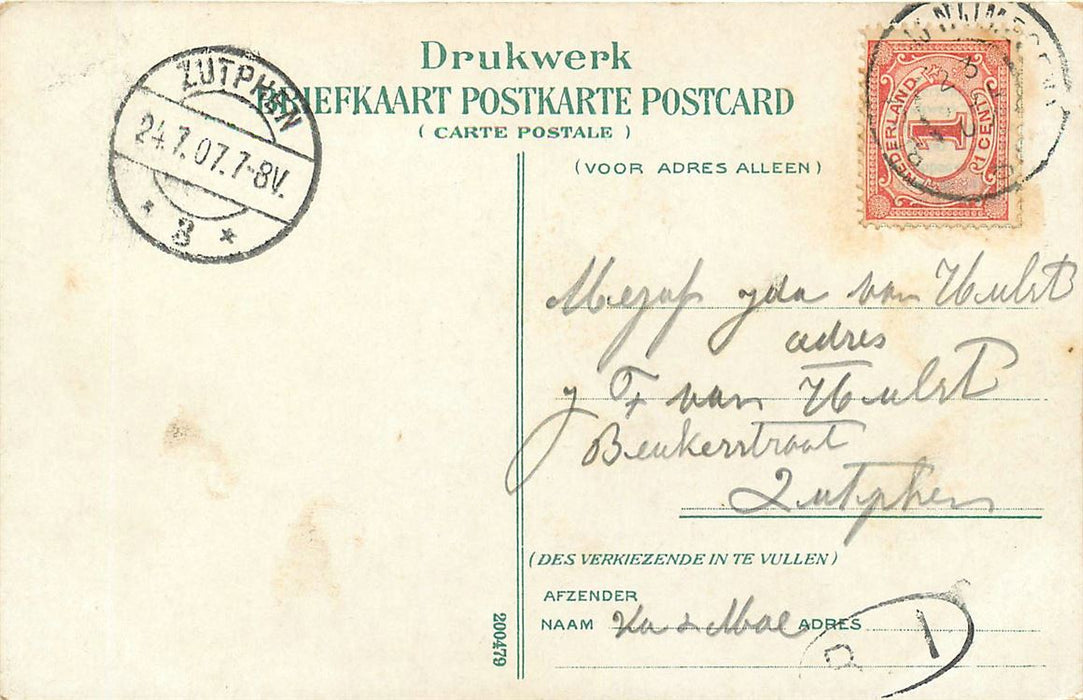 Drukwerk
BRIEFKAART POSTKARTE POSTCARD
( CARTE POSTALE )
(VOOR ADRES ALLEEN)
ZUTPHEN
24.7.07.7-8V.
* 3 *
NEDERLAND
1
1 CENT
NIJMEGEN
Mejuf Yda van Hulst
adres
J F van Hulst
Beukerstraat
Zutphen
(DES VERKIEZENDE IN TE VULLEN)
AFZENDER
NAAM Ka & Moe ADRES
1
200479